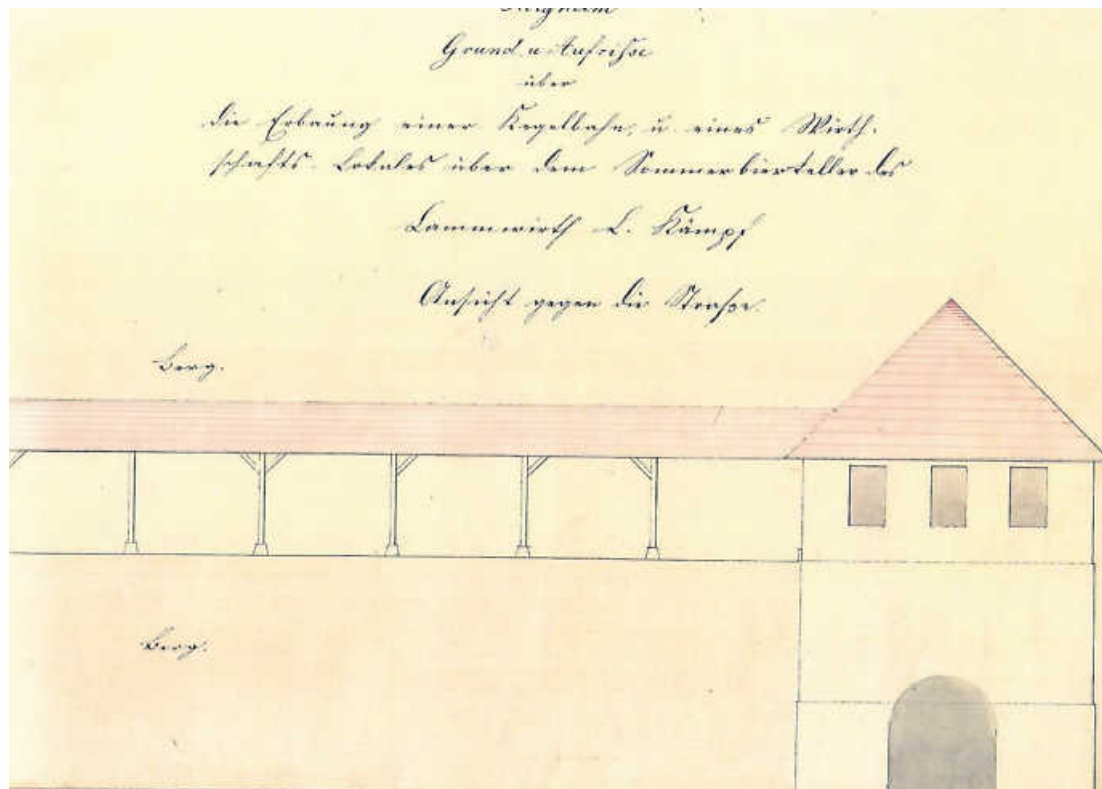 Grund u. Aufriße
über
die Erbauung einer Kegelbahn, u. eines Wirth-
schafts-Lokales über dem Sommerbierkeller des
Lammwirth L. Kämpf
Ansicht gegen die Straße.
Berg.
Berg.